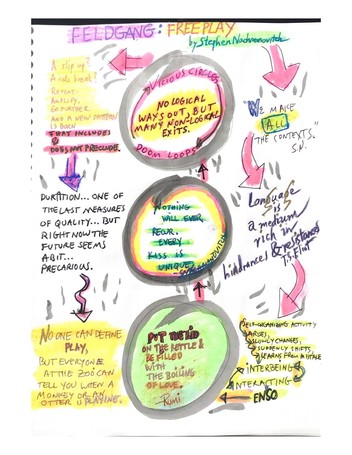 FELDGANG: FREEPLAY
by Stephen Nachmanovitch
A slip up?
A rule break?
REPEAT.
AMPLIFY.
GO FURTHER
AND A NEW PATTERN
IS BORN
THAT INCLUDES
&
DOES NOT PRECLUDE.
DURATION... ONE OF
THE LAST MEASURES
OF QUALITY... BUT
RIGHT NOW THE
FUTURE SEEMS
A BIT...
PRECARIOUS.
NO ONE CAN DEFINE
PLAY,
BUT EVERYONE
AT THE ZOO CAN
TELL YOU WHEN A
MONKEY OR AN
OTTER IS PLAYING.
VICIOUS CIRCLES
NO LOGICAL
WAYS OUT, BUT
MANY NON-LOGICAL
EXITS.
DOOM LOOPS
NOTHING
WILL EVER
RECUR.
EVERY
KISS IS
UNIQUE
PUT THE LID
ON THE KETTLE &
BE FILLED
WITH
THE BOILING
OF LOVE.
Rumi
WE MAKE
ALL
THE CONTEXTS."
S.N.
Language
is
a medium
rich in
hindrances & resistances
T.S. Eliot
SELF-ORGANIZING ACTIVITY
ARISES,
SLOWLY CHANGES,
SUDDENLY SHIFTS,
LEARNS FROM MISTAKES
INTERBEING &
INTERACTING
ENSO